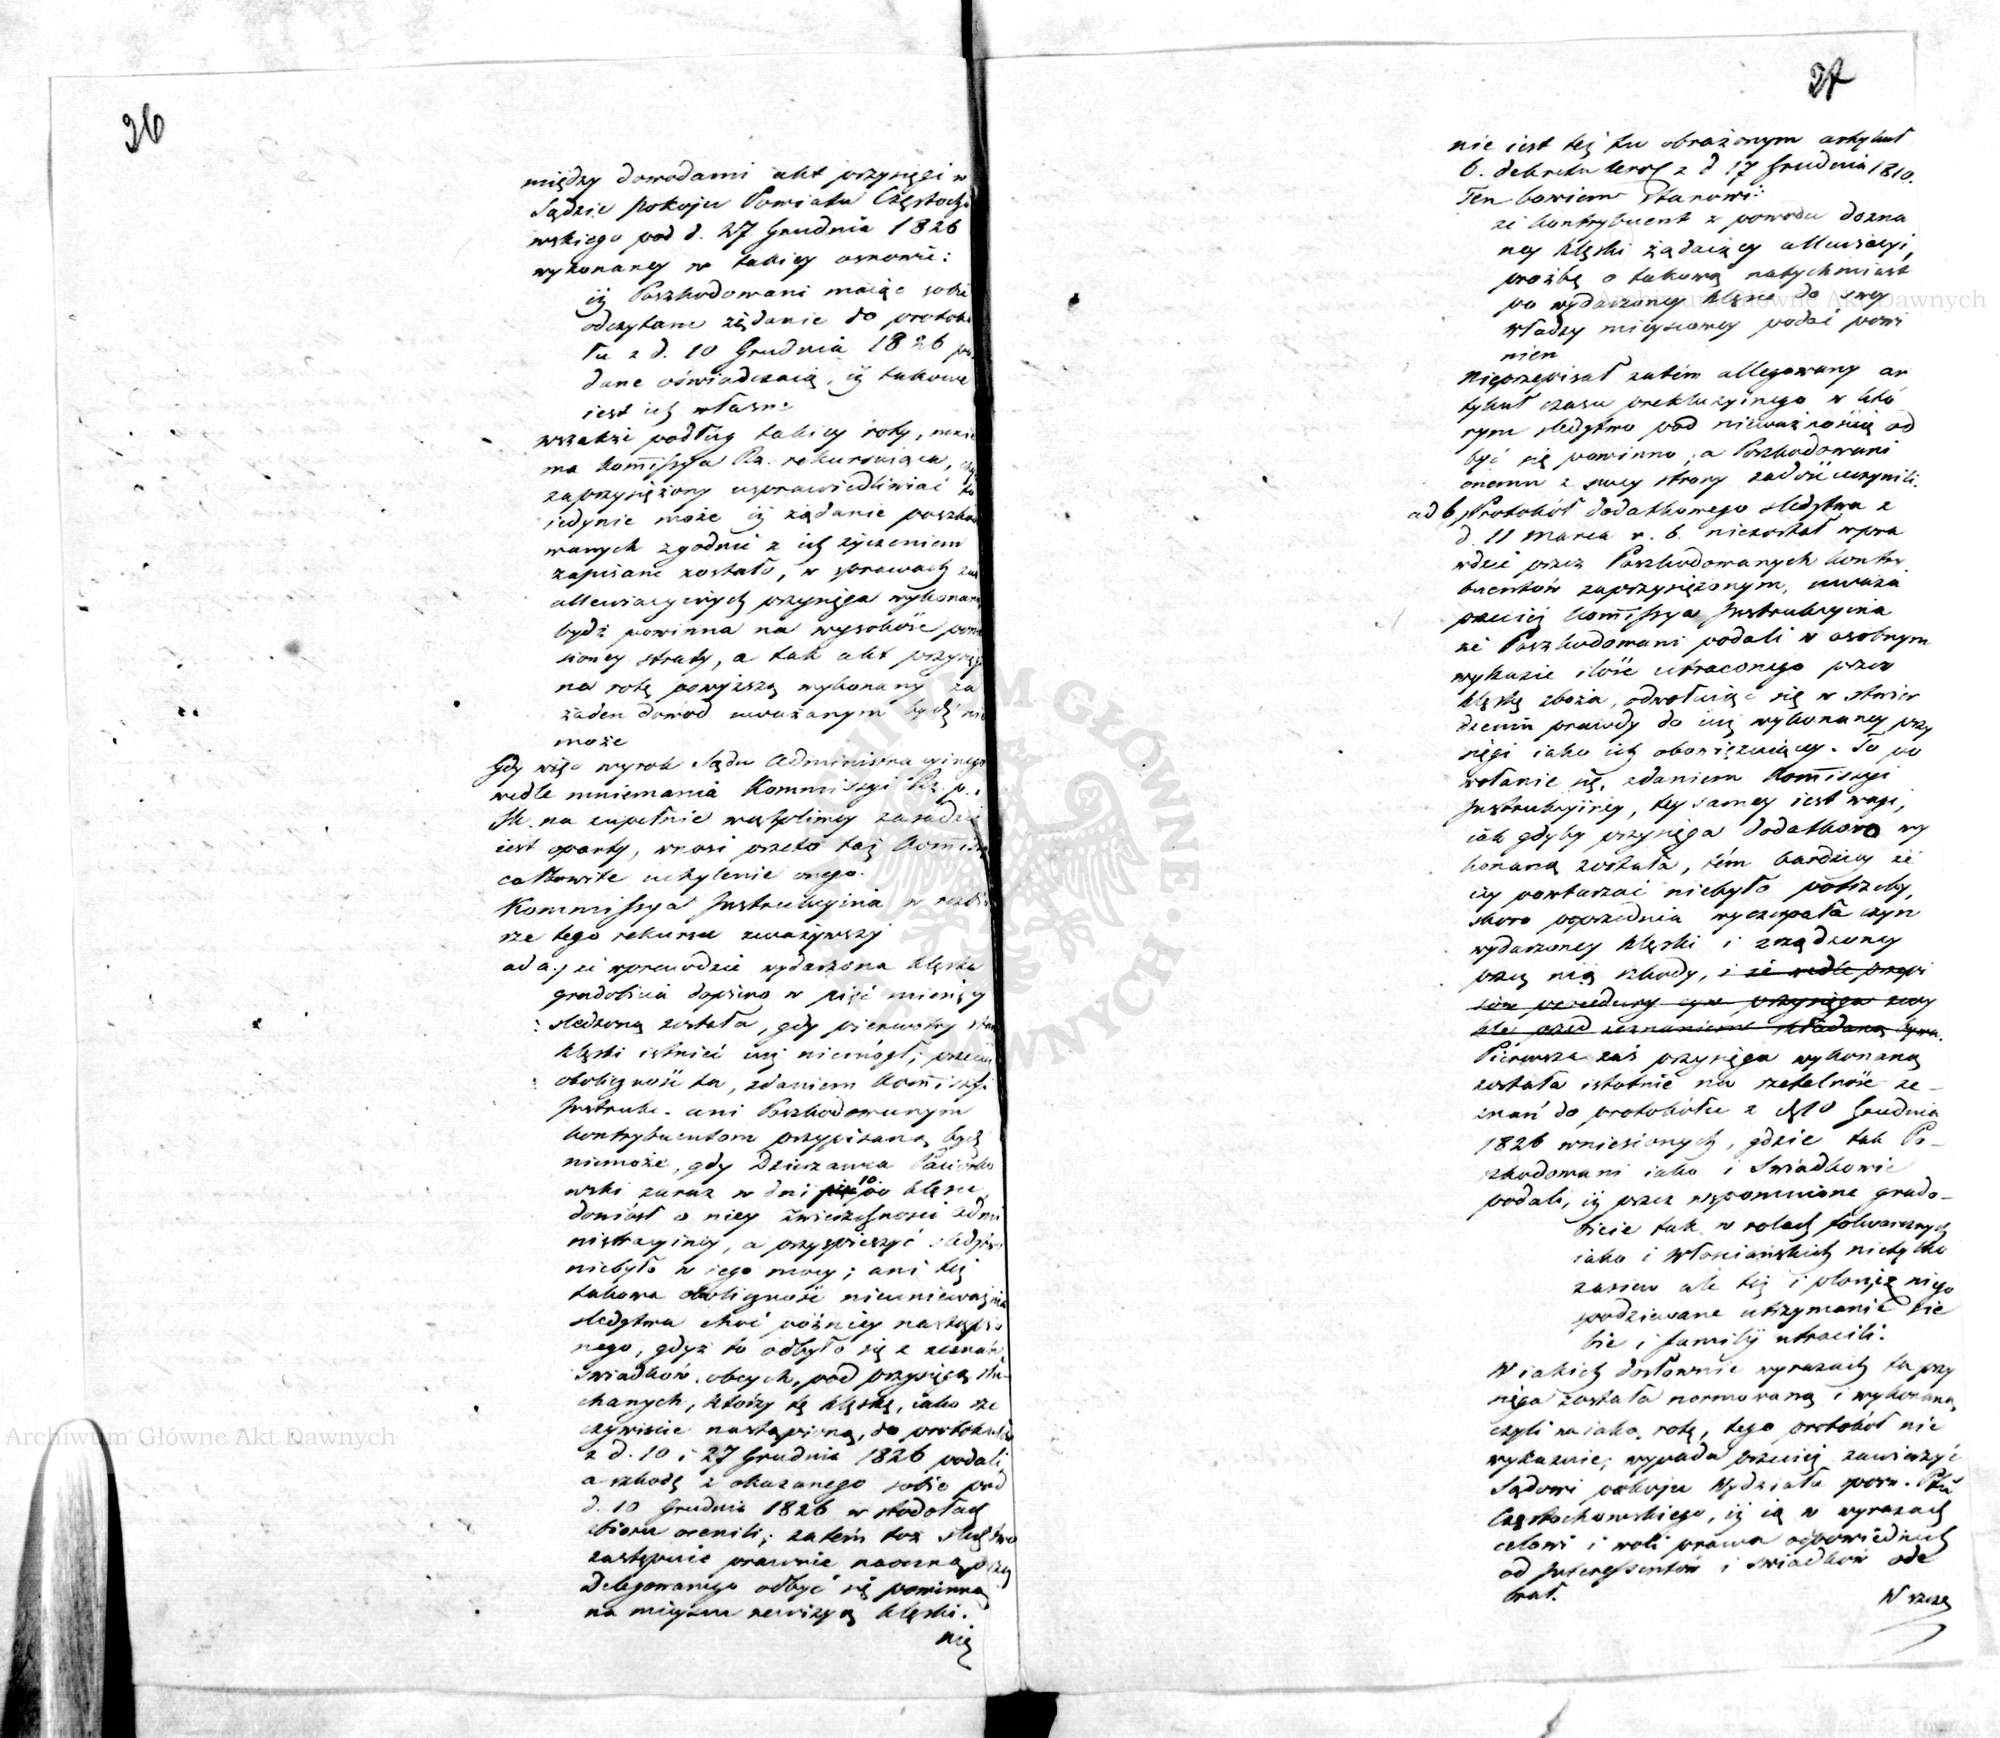 26
między dowodami akt przysięgi w
Sądzie Pokoju Powiatu Częstocho
wskiego pod d. 27 Grudnia 1826
wykonaney w takiey osnowie:
iż Poszkodowani maiąc sobie
odczytane żądanie do protokó
łu z d. 10 Grudnia 1826 po
dane oświadczaią, iż takowe
iest ich własne
wszakże podług takiey roty, mnie
ma Kommissya Rz. rekursuiąca,
zaprzysiężony usprawiedliwiać to
iedynie może iż żądanie poszkodo
wanych zgodnie z ich życzeniem
zapisane zostało, w sprawach zaś
allewiacyinych przysięga wykonana
bydź powinna na wysokość ponie
sioney straty, a tak akt przysięgi
na rotę powyższą wykonany za
żaden dowod uważanym bydź nie
może
Gdy więc wyrok Sądu Administracyinego
wedle mniemania Kommissyi Rz. p. i
Sk. na zupełnie wątpliwey zasadzie
iest oparty, wnosi przeto taż Kommissya
całkowite uchylenie onego.
Kommissya Instrukcyina w rozbio
rze tego rekursu zważywszy
ad a.) że wprawdzie wydarzona klęska
gradobicia dopiero w pięć miesięcy
śledzoną została, gdy pierwotny stan
klęski istnieć iuż niemógł; przecież
okoliczność ta, zdaniem Kommissyi
Instrukc. ani Poszkodowanym
kontrybuentom przypisaną bydź
niemoże, gdy Dzierzawca Paciorko
wski zaraz w dni 10 po klęsce
doniósł o niey Zwierzchności Admi
nistracyiney, a przyspieszyć śledztwo
niebyło w iego mocy; ani też
takowa okoliczność nieunieważnia
śledztwa choć później nastąpio
nego, gdyż to odbyło się z zeznań
świadków obcych, pod przysięgą słu-
chanych, którzy tę klęskę, iako rze
czywiście nastąpioną, do protokułów
z d. 10 i 27 Grudnia 1826 podali
a szkodę z okazanego sobie pod
d. 10 Grudnia 1826 w stodołach
zbioru ocenili; zatém toż śledztwo
zastępuie prawnie naoczną przez
Delegowanego odbyć się powinną
na mieyscu rewizyą klęski.
nie
27
nie iest też tu obrażonym artykuł
6. dekretu król z d 17 Grudnia 1810.
Ten bowiem stanowi:
że kontrybuent z powodu dozna
ney klęski żądaiący allewiacyi,
proźbę o takową natychmiast
po wydarzoney klęsce do swey
władzy mieyscowey podać powi
nien
Nieprzepisał zatém allegowany ar
tykuł czasu prekluzyinego w któ
rym śledztwo pod nieważnością od
być się powinno, a Poszkodowani
onemu z swey strony zadość uczynili.
ad b) Protokół dodatkowego śledztwa z
d. 11 Marca r. b. niezostał wpra
wdzie przez Poszkodowanych kontry
buentów zaprzysiężonym, uważa
przecież Kommissya Instrukcyina
że Poszkodowani podali w osobnym
wykazie ilość utraconego przez
klęskę zboża, odwołuiąc się w stwier
dzeniu prawdy do iuż wykonaney przy
sięgi iako ich obowięzuiącey. To po
wołanie się, zdaniem Kommissyi
Instrukcyiney, tey samey iest wagi,
iak gdyby przysięga dodatkowo wy
konaną została, tém bardziey że
iey powtarzać niebyło potrzeby,
skoro poprzednia wyczerpała czyn
wydarzoney klęski i zrządzoney
przez nią szkody, i że wedle przepi
sów procedury cyw przysięga zwy
kle przed zeznaniem składaną bywa.
Pierwsza zaś przysięga wykonaną
została istotnie na rzetelność ze-
znań do protokółu z d. 10 Grudnia
1826 wniesionych, gdzie tak Po-
szkodowani iako i Swiadkowie
podali, iż przez wspomnione grado-
bicie tak w rolach folwarcznych
iako i Włościańskich nietylko
zasiew ale też i plon z niego
spodziewane utrzymanie sie
bie i familij utracili.
W iakich dosłownie wyrazach ta przy
sięga została normowaną i wykonaną
czyli na iaką rotę, tego protokół nie
wykazuie; wypada przecież zawierzyć
Sądowi pokoju Wydziału spor. Ptu
Częstochowskiego, iż ią w wyrazach
celowi i woli prawa odpowiednich
od Interessentów i świadków ode
brał.
W rzeczy
Archiwum Główne Akt Dawnych
Archiwum Główne Akt Dawnych
ARCHIWUM GŁÓWNE AKT DAWNYCH